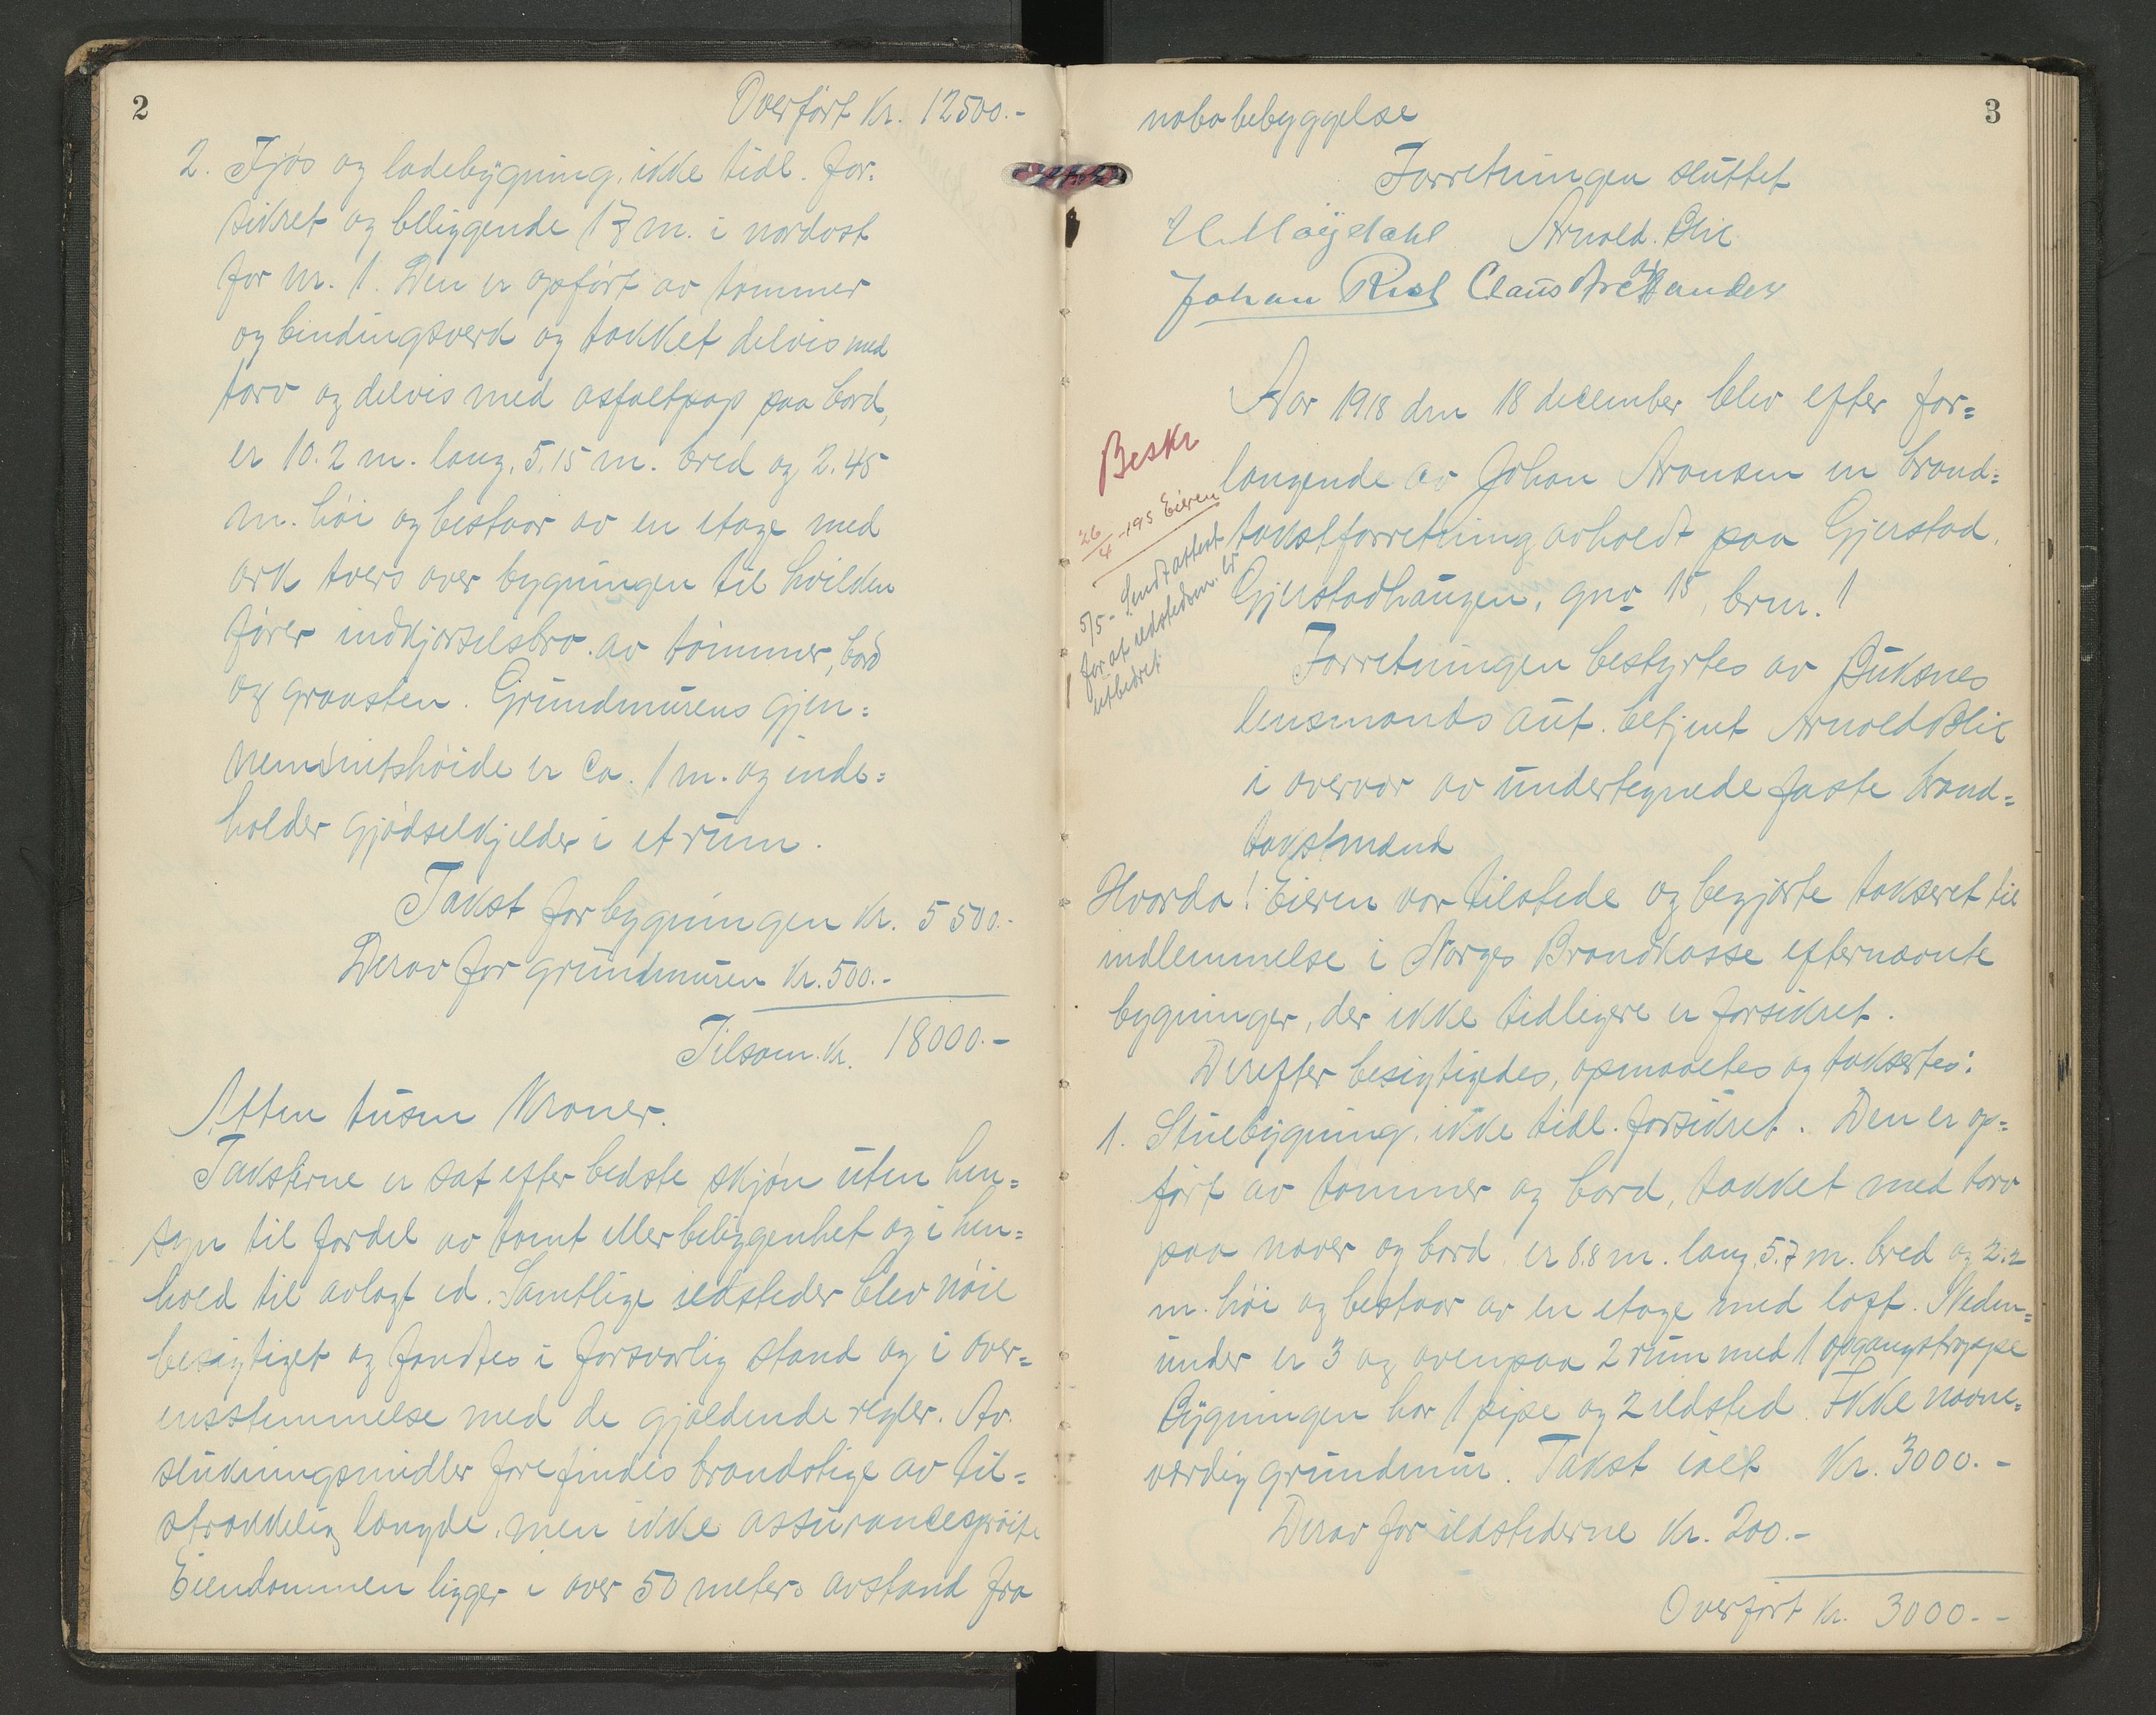 2
Overført Kr. 12500.-
2. Fjøs og ladebygning, ikke tidl. for=
sikret og beliggende 18 m. i nordost
for nr. 1. Den er opført av tømmer
og bindingsverk og tækket delvis med
torv og delvis med asfaltpap paa bord,
er 10.2 m. lang, 5.15 m. bred og 2.45
m. høi og bestaar av en etage med
ark tvers over bygningen til hvilken
fører indkjørselsbro av tømmer, bord
og graasten. Grundmurens gjen=
nemsnitshøide er ca. 1 m. og inde=
holder gjødselkjelder i et rum.
Takst for bygningen Kr. 5500.-
Derav for grundmuren Kr. 500.-
Tilsam. Kr. 18000.-
Atten tusen Kroner.
Taksterne er sat efter bedste skjøn uten hen=
syn til fordel av tomt eller beliggenhet og i hen=
hold til avlagt ed. Samtlige ildsteder blev nøie
besigtiget og fandtes i forsvarlig stand og i over=
ensstemmelse med de gjældende regler. Av
slukningsmidler forefindes brandstige av til=
strækkelig længde, men ikke assurancesprøite
Eiendommen ligger i over 50 meters avstand fra
3
nabobebyggelse
Forretningen sluttet
H. Møgdahl Arnold Blix
Johan Rist Claus
Aar 1918 den 18 december blev efter for=
langende av Johan Aronsen en brand=
takstforretning avholdt paa Gjerstad,
Gjerstadhaugen, gno 15, brnr. 1
Beskr
26/4-195 Eieren
5/5- Sendt attest
for at ildstedsm. er
utbedret
Forretningen bestyrtes av Buksnes
lensmands aut. betjent Arnold Blix
i overvær av undertegnede faste brand=
takstmænd
Hvorda! Eieren var tilstede og begjærte takseret til
indlemmelse i Norges Brandkasse efternævnte
bygninger, der ikke tidligere er forsikret.
Derefter besigtigedes, opmaaltes og taksertes:
1. Stuebygning, ikke tidl. forsikret. Den er op=
ført av tømmer og bord, tækket med torv
paa næver og bord, er 8.8 m. lang, 5.7 m. bred og 2.2
m. høi og bestaar av en etage med loft. Neden=
under er 3 og ovenpaa 2 rum med 1 opgangstrappe
Bygningen har 1 pipe og 2 ildsted. Ikke nævne=
værdig grundmur. Takst ialt Kr. 3000.-
Derav for ildstederne Kr. 200.-
Overført Kr. 3000.-